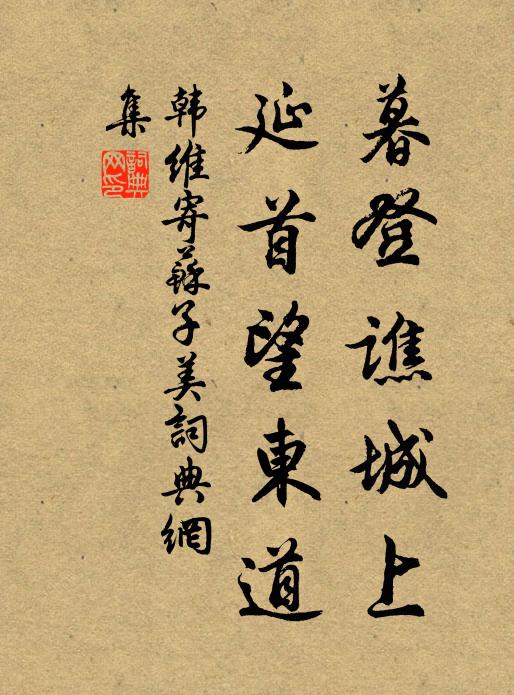 暮登譙城上
延首望東道
韩維寄蘇子美詞典網
集
詞典
网印